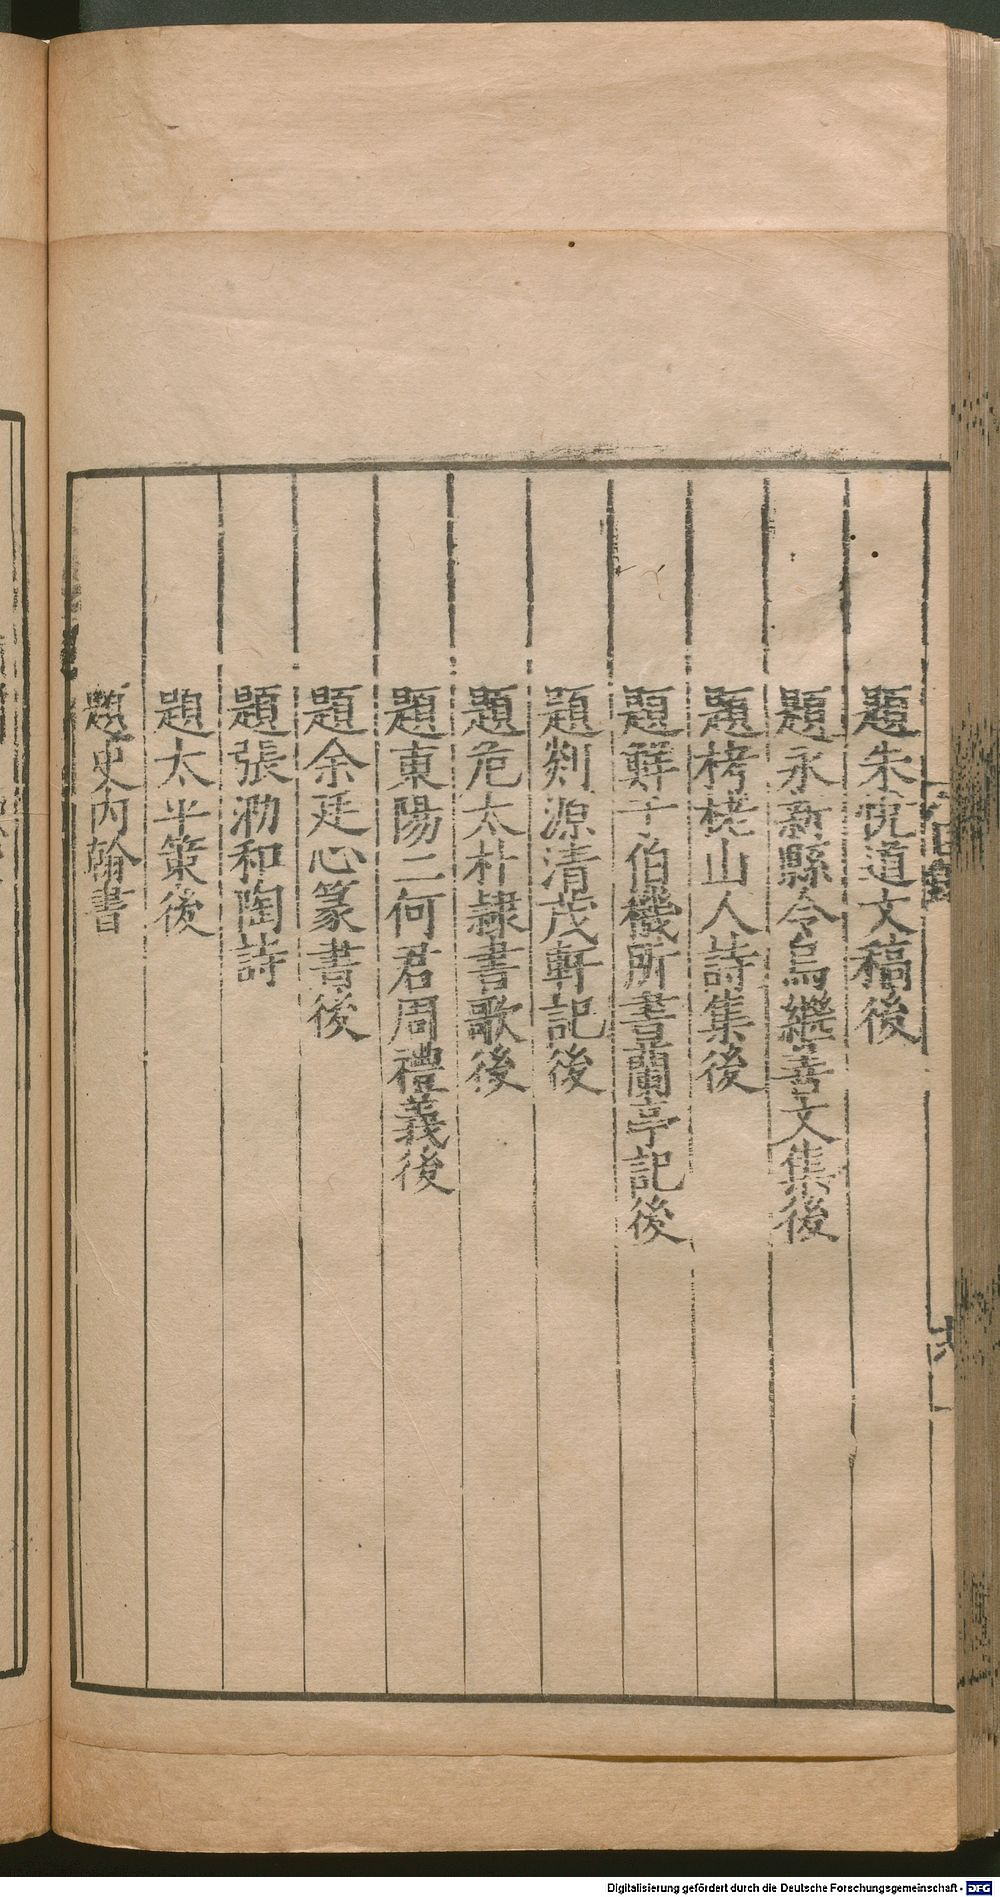 題朱悅道文稿後
題永新縣令烏繼善文集後
題栲栳山人詩集後
題鮮于伯機所書蘭亭記後
題剡源清茂軒記後
題危太朴隷書歌後
題東陽二何君周禮義後
題余廷心篆書後
題張泐和陶詩
題太平策後
題史內翰書
Digitalisierung gefördert durch die Deutsche Forschungsgemeinschaft - DFG